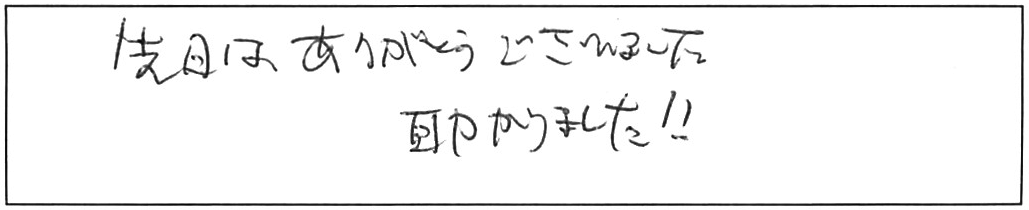 先日は、ありがとうございました
助かりました!!